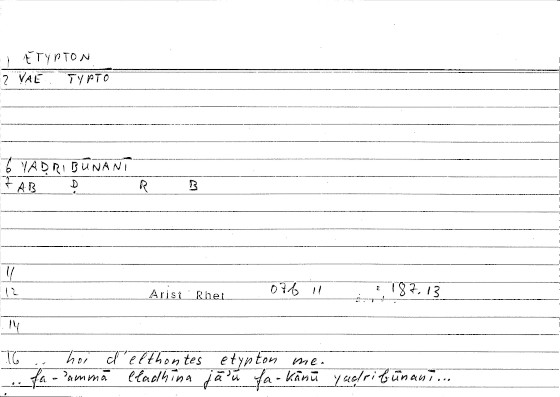 1 ETYPTON
2 VAE TYPTO
6 YAḌRIBŪNANĪ
7 AB Ḍ R B
11
12 Arist Rhet 076 11 187.13
14
16 .. hoi d'elthontes etypton me.
.. fa-'ammā lladhīna jā'ū fa-kānū yaḍribūnanī...